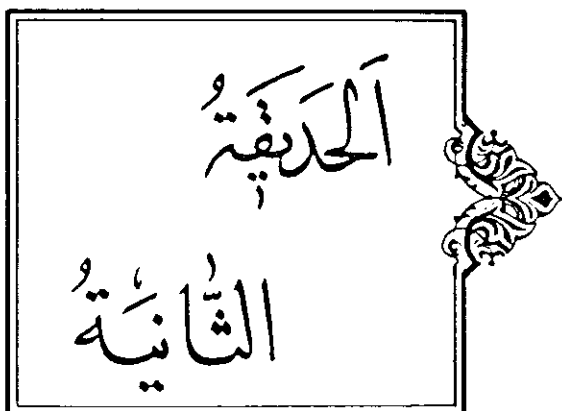 اَلحَدِيقَةُ
الثَّانِيَةُ